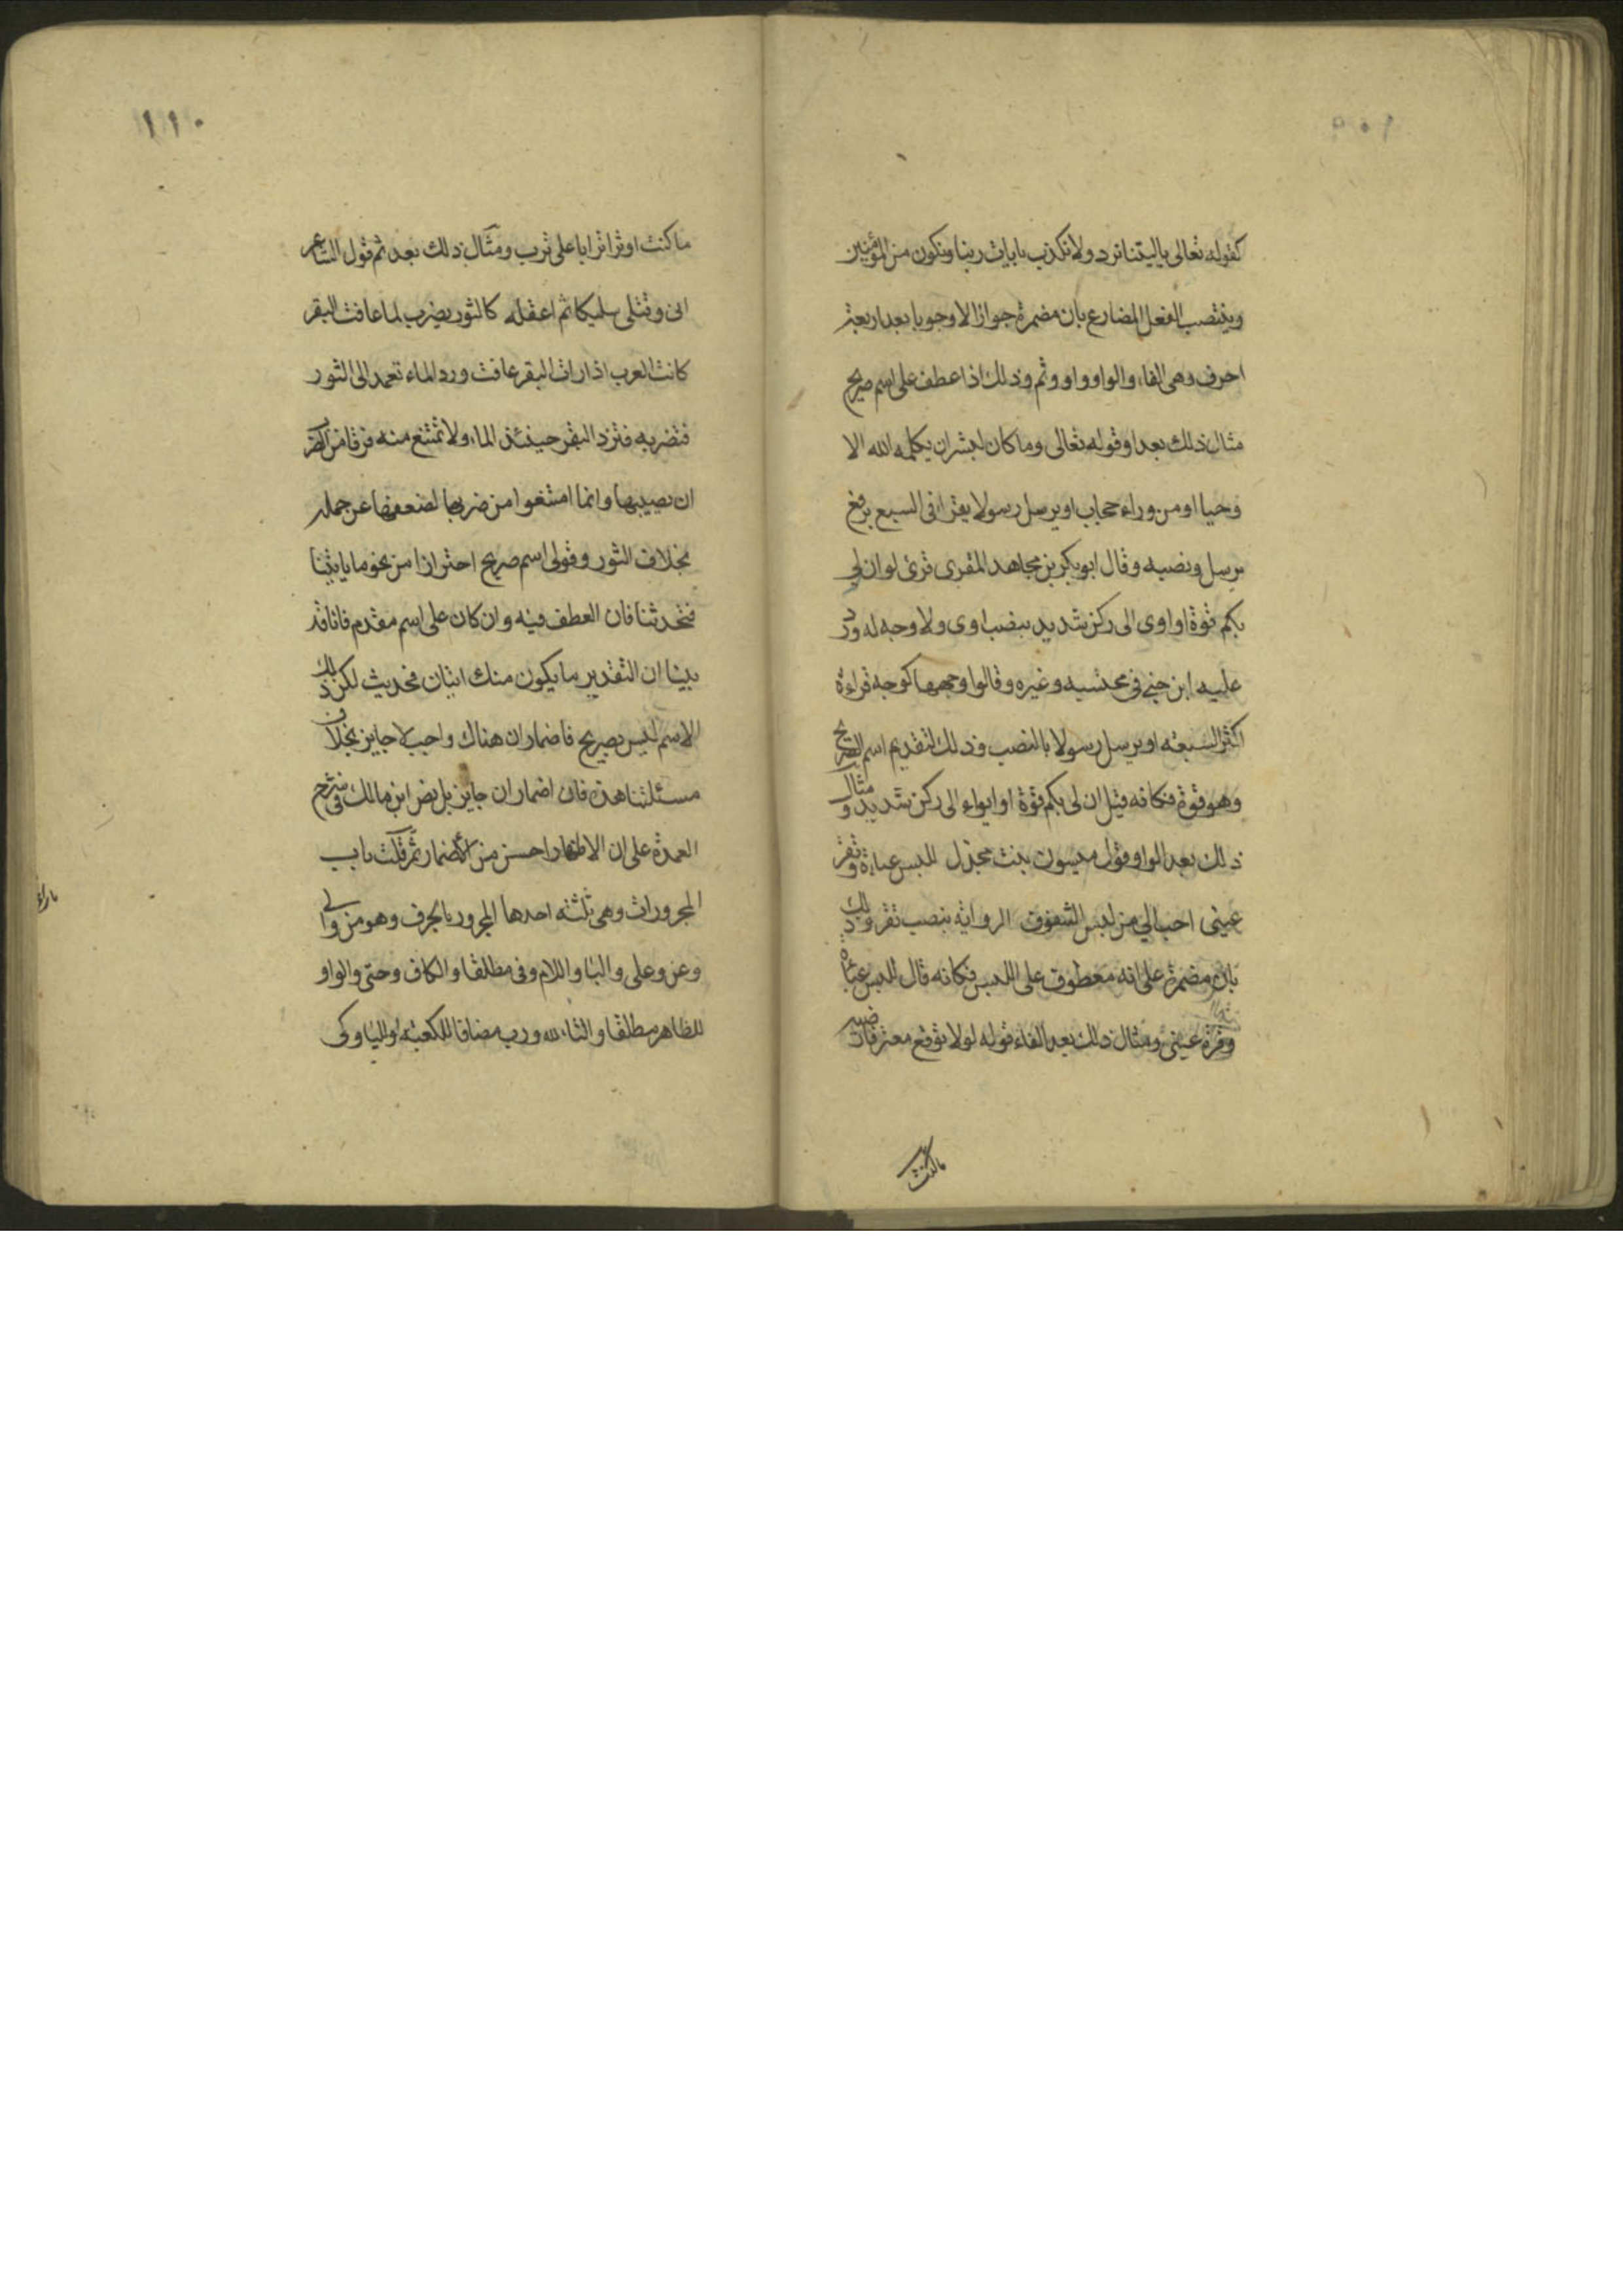 ١٠٩
كقوله تعالى ياليتنا نرد ولا نكذب بايات ربنا ونكون من المؤمنين
وينتصب الفعل المضارع بان مضمرة جوازا لا وجوبا بعد اربعة
احرف وهى الفاء والواو واو وثم وذلك اذا عطف على اسم صريح
مثال ذلك بعد او قوله تعالى وما كان لبشر ان يكلمه الله الا
وحيا او من وراء حجاب او يرسل رسولا يقرا فى السبع برفع
يرسل ونصبه وقال ابو بكر بن مجاهد المقرى قرئ لو ان لي
بكم قوة او اوى الى ركن شديد بنصب اوى ولا وجه له ورد
عليه ابن جنى فى محتسبه وغيره وقالوا وجهها كوجه قراءة
اكثر السبعة او يرسل رسولا بالنصب وذلك لتقديم اسم الصريح
وهو قوة فكانه قيل ان لى بكم قوة او ايواء الى ركن شديد ومثال
ذلك بعد الواو قول ميسون بنت مجدل للبس عباءة وتقر
عينى احب الي من لبس الشفوف الرواية بنصب تقر وذلك
بان مضمرة على انه معطوف على اللبس فكانه قال للبس عباءة
وقرة عينى ومثال ذلك بعد الفاء قوله لولا توقع معتر فارضيه
ماكنت
١١٠
ماكنت اوثر اترابا على ترب ومثال ذلك بعد ثم قول الشاعر
انى وقتلى سليكا ثم اعقله كالثور يضرب لما عافت البقر
كانت العرب اذا رات البقر عافت ورد الماء تعمد الى الثور
فتضربه فترد البقر حينئذ الماء ولا تمتنع منه فرقا من الضر
ان يصيبها وانما امتنعوا من ضربها لضعفها عن حمله
بخلاف الثور وقولى اسم صريح احترازا من نحو ما ياتينا
فتحدثنا فان العطف فيه وان كان على اسم مقدم فانا قد
بينا ان التقدير ما يكون منك اتيان فحديث لكن ذلك
الاسم ليس بصريح فاضمار ان هناك واجب لا جايز بخلاف
مسئلتنا هذه فان اضمار ان جايز بل نص ابن مالك فى شرح
العمدة على ان الاظهار احسن من الاضمار ثم قلت باب
المجرورات وهى ثلثه احدها المجرور بالحرف وهو من والى
وعن وعلى والبا واللام وفى مطلقا والكاف وحتى والواو
للظاهر مطلقا والتاء لله ورب مضافا للكعبة او لليا وكى